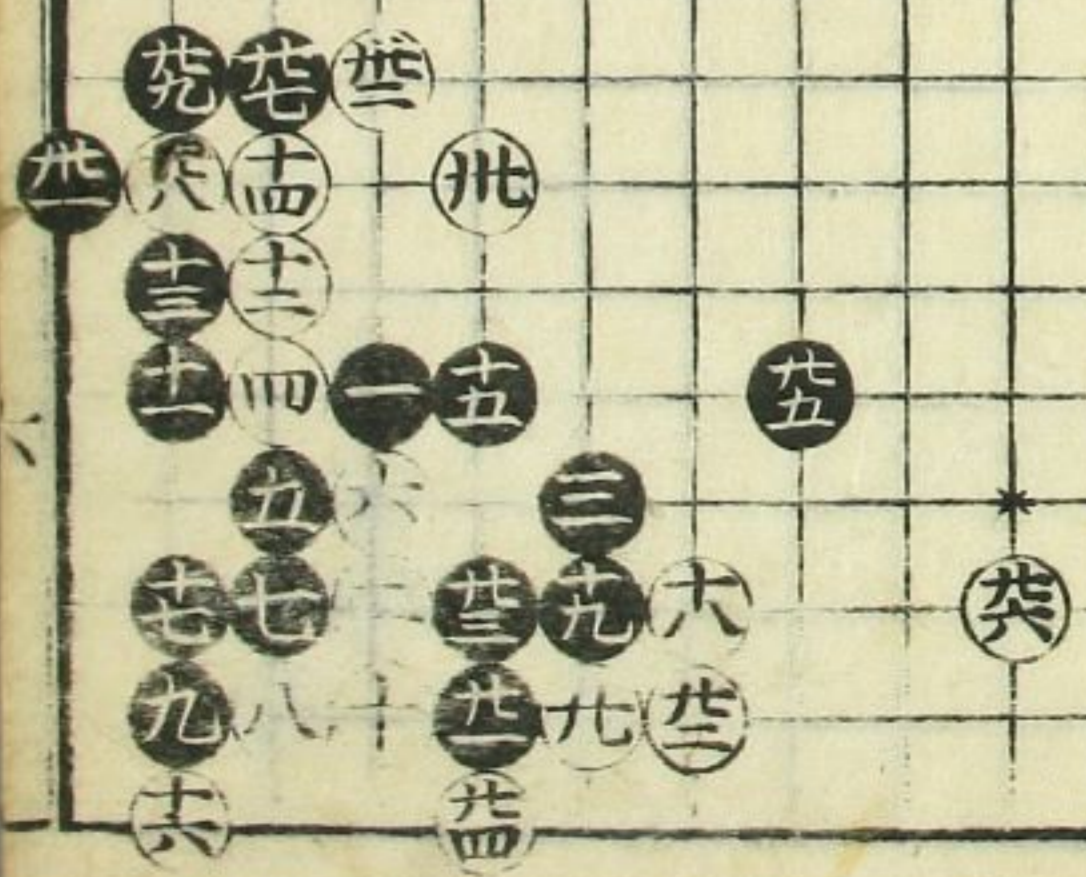 廿九 廿七 卅二
卅一 廿八 十四 卅
十三 十二
十一 四 一 十五 廿五
五 六 三
十七 七 二 廿三 十九 十八 廿六
九 八 十 廿一 廿 廿二
十六 廿四